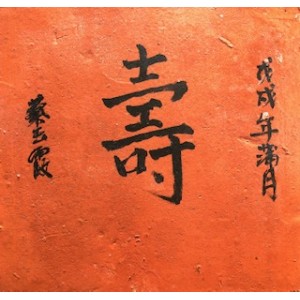 戊戌年蒲月
壽
蔡玉霞